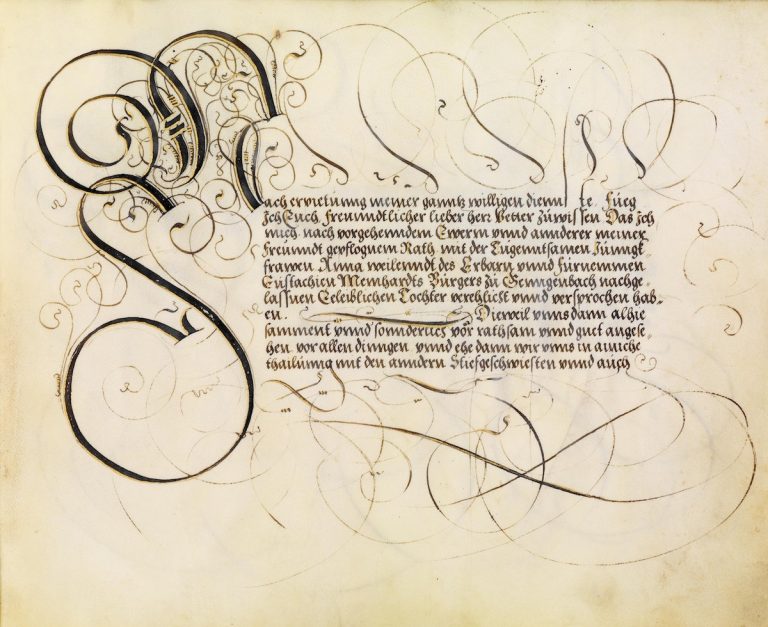 Nach erpietunng meiner ganntz willigen dienнste. Füeg
Ich Euch Freunndtlicher lieber herr Vetter zůwissen Das Ich
mich nach vorgehenndem Ewerm vnnd annderer meiner
Freünndt gepflognem Rath mit der Tugenntsamen Jünngk-
frawen Anna weilenndt des Erbarn vnnd fürnemmen
Eustachien Meinhardts Burgers zů Genngenbach nachge-
lassnen Eeleiblichen Tochter verehlicht vnnd versprochen hab-
en. Dieweil vnns dann alhie
samment vnnd sonnderlich vor rathsam vnnd guet angese-
hen vor allen dinngen vnnd ehe dann wir vnns in ainiche
thailunng mit den anndern Stiefgeschwiesten vnnd auch